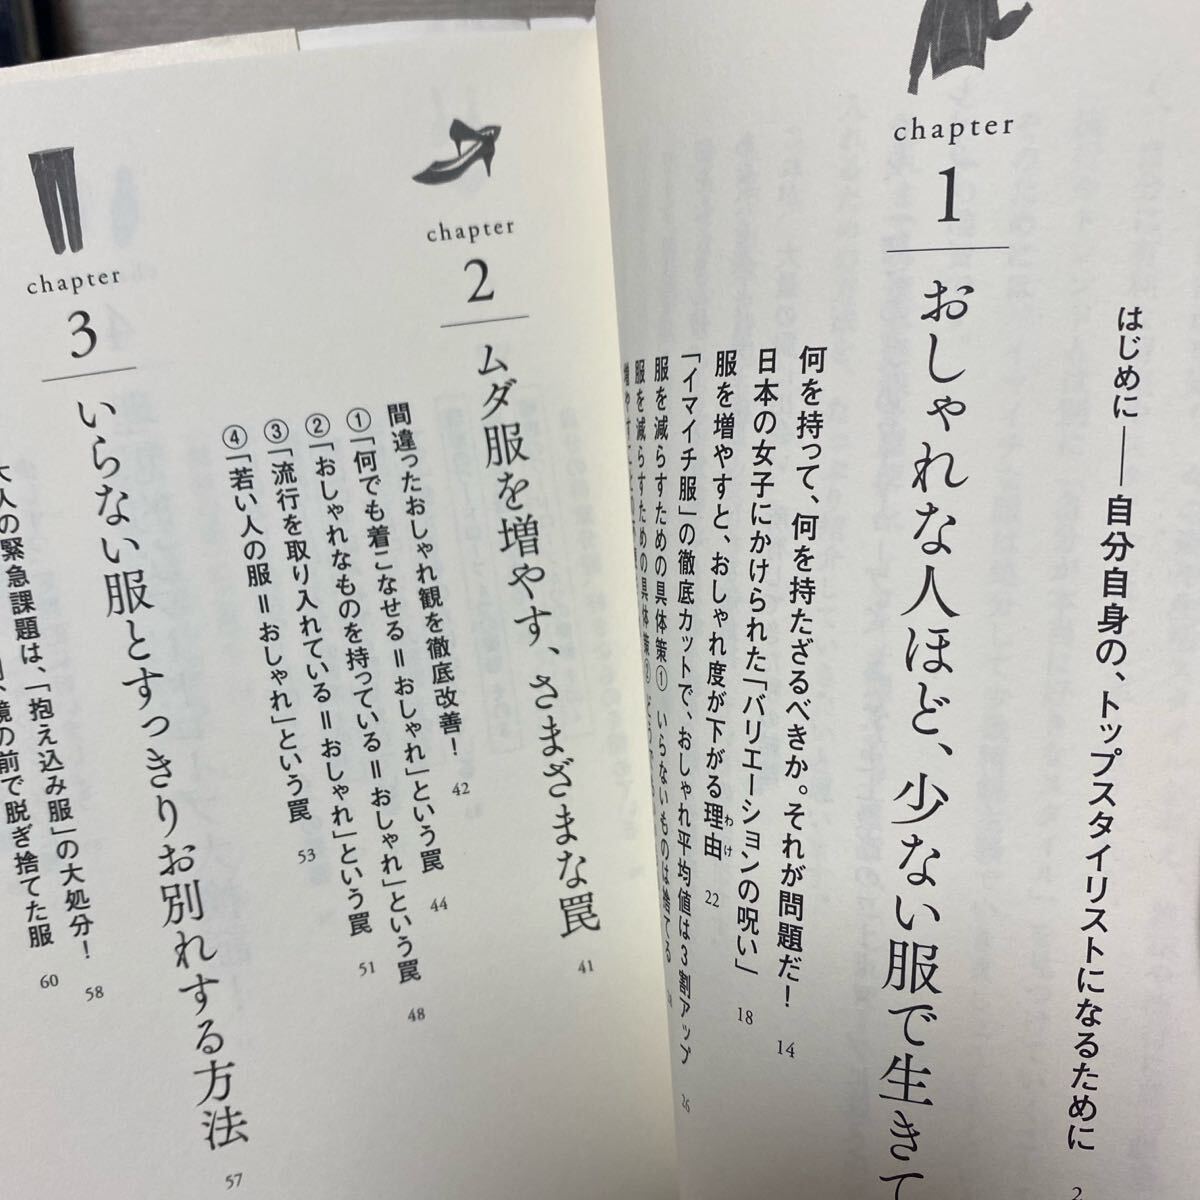 はじめに――自分自身の、トップスタイリストになるために 2
chapter
1
おしゃれな人ほど、少ない服で生きて
何を持って、何を持たざるべきか。それが問題だ! 14
日本の女子にかけられた「バリエーションの呪い」 18
服を増やすと、おしゃれ度が下がる理由 22
わけ
「イマイチ服」の徹底カットで、おしゃれ平均値は3割アップ 26
服を減らすための具体策① いらないものは捨てる
服を減らすための具体策②
chapter
2
ムダ服を増やす、さまざまな罠 41
間違ったおしゃれ観を徹底改善! 42
①「何でも着こなせる=おしゃれ」という罠 44
②「おしゃれなものを持っている=おしゃれ」という罠 48
③「流行を取り入れている=おしゃれ」という罠 51
④「若い人の服=おしゃれ」という罠 53
chapter
3
いらない服とすっきりお別れする方法 57
大人の緊急課題は、「抱え込み服」の大処分! 58
鏡の前で脱ぎ捨てた服 60